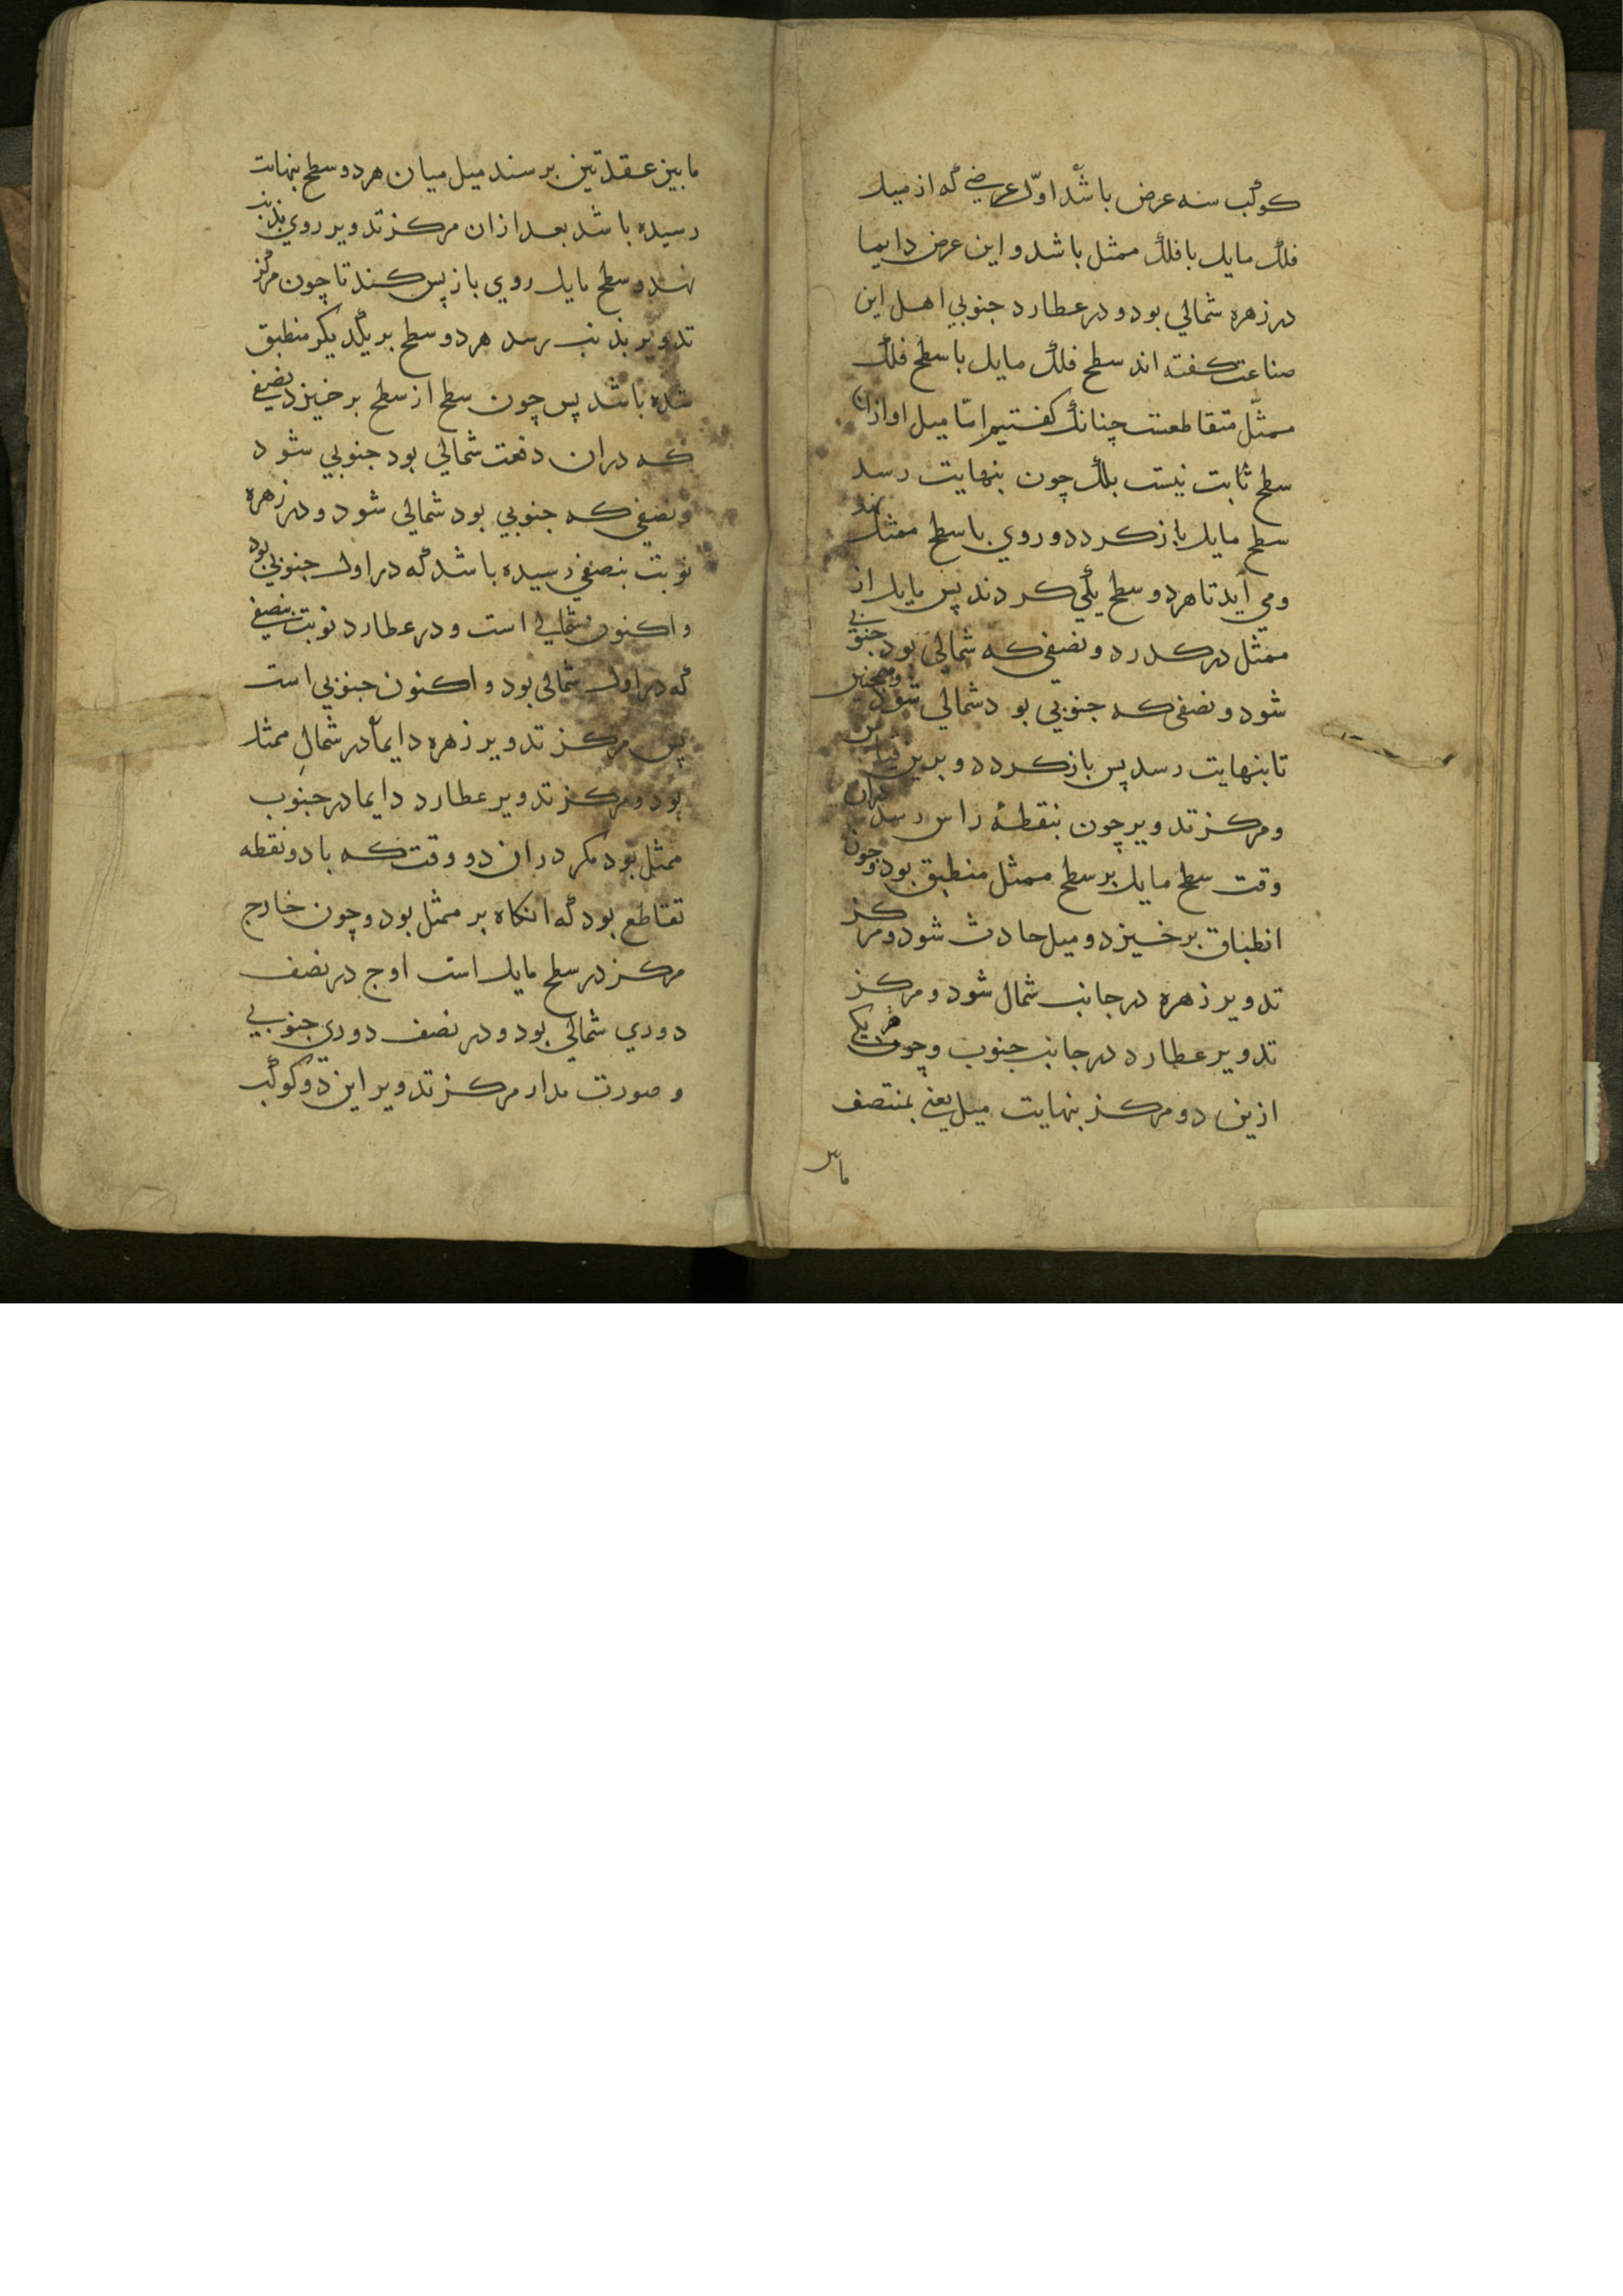 کوکب سه عرض باشد اوّل عرضی که از میل
فلک مایل با فلک ممثل باشد و این عرض دایما
در زهره شمالي بود و در عطارد جنوبي اهل این
صناعت کفته اند سطح فلک مایل با سطح فلک
ممثّل متقاطعست چنانک کفتیم امّا میل او ازان
سطح ثابت نیست بلک چون بنهایت رسد
سطح مایل باز کردد و روي با سطح ممثل نهد
ومي آید تا هر دو سطح یکي کردند پس مایل از
ممثل در کدرد و نصفي که شمالي بود جنوبي
شود و نصفي که جنوبي بود شمالي شود وهمچنین
تا بنهایت رسد پس باز کردد و برین قیاس
و مرکز تدویر چون بنقطهٔ راس رسد دران
وقت سطح مایل بر سطح ممثل منطبق بود و چون
انطباق برخیزد و میل حادث شود و مرکز
تدویر زهره در جانب شمال شود و مرکز
تدویر عطارد در جانب جنوب و چون هر یکی
ازین دو مرکز بنهایت میل یعني بمنتصف
ما بین
ما بین عقدتین برسند میل میان هر دو سطح بنهایت
رسیده باشد بعد ازان مرکز تدویر روي بذنب
نهد و سطح مایل روي باز پس کند تا چون مرکز
تدویر بذنب رسد هر دو سطح بر یکدیکر منطبق
شده باشد پس چون سطح از سطح برخیزد نصفي
که دران دفعت شمالي بود جنوبي شود
و نصفي که جنوبي بود شمالي شود و در زهره
نوبت بنصفي رسیده باشد که در اول جنوبي بود
و اکنون شمالي است و در عطارد نوبت بنصفي
که در اول شمالي بود و اکنون جنوبي است
پس مرکز تدویر زهره دایماً در شمالِ ممثل
بود و مرکز تدویر عطارد دایما در جنوب
ممثل بود مکر دران دو وقت که با دو نقطه
تقاطع بود که انکاه بر ممثل بود و چون خارج
مرکز در سطح مایل است اوج در نصف
دوري شمالي بود و در نصف دوري جنوبي
و صورت مدار مرکز تدویر این دو کوکب